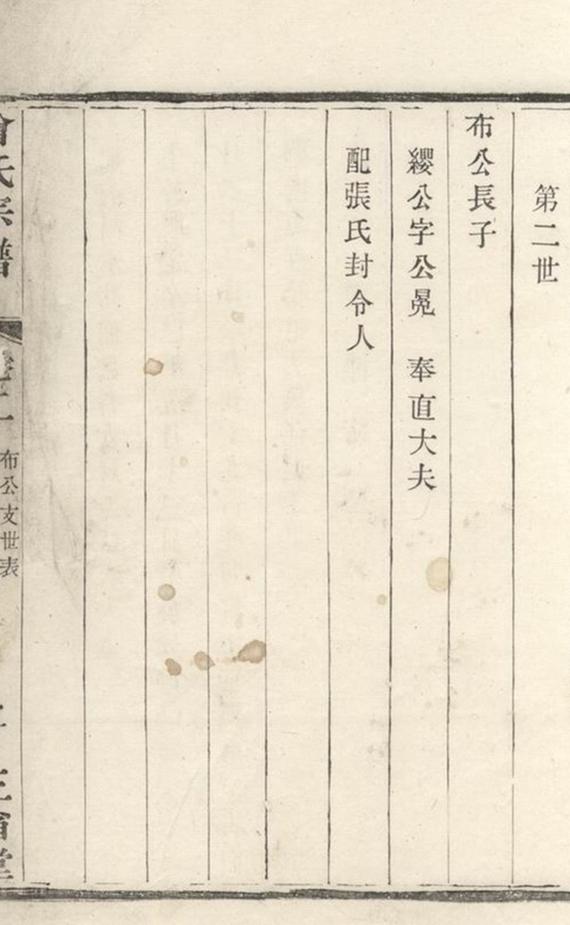 第二世
布公長子
纓公字公冕　奉直大夫
配張氏封令人
氏宗譜
布公支世表